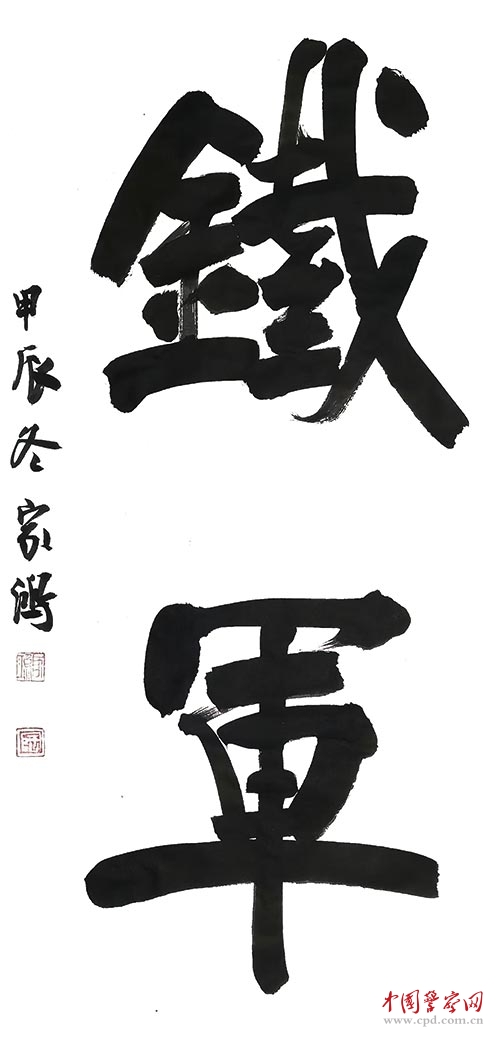 鐵軍
甲辰冬家鴻
中国警察网
www.cpd.com.cn